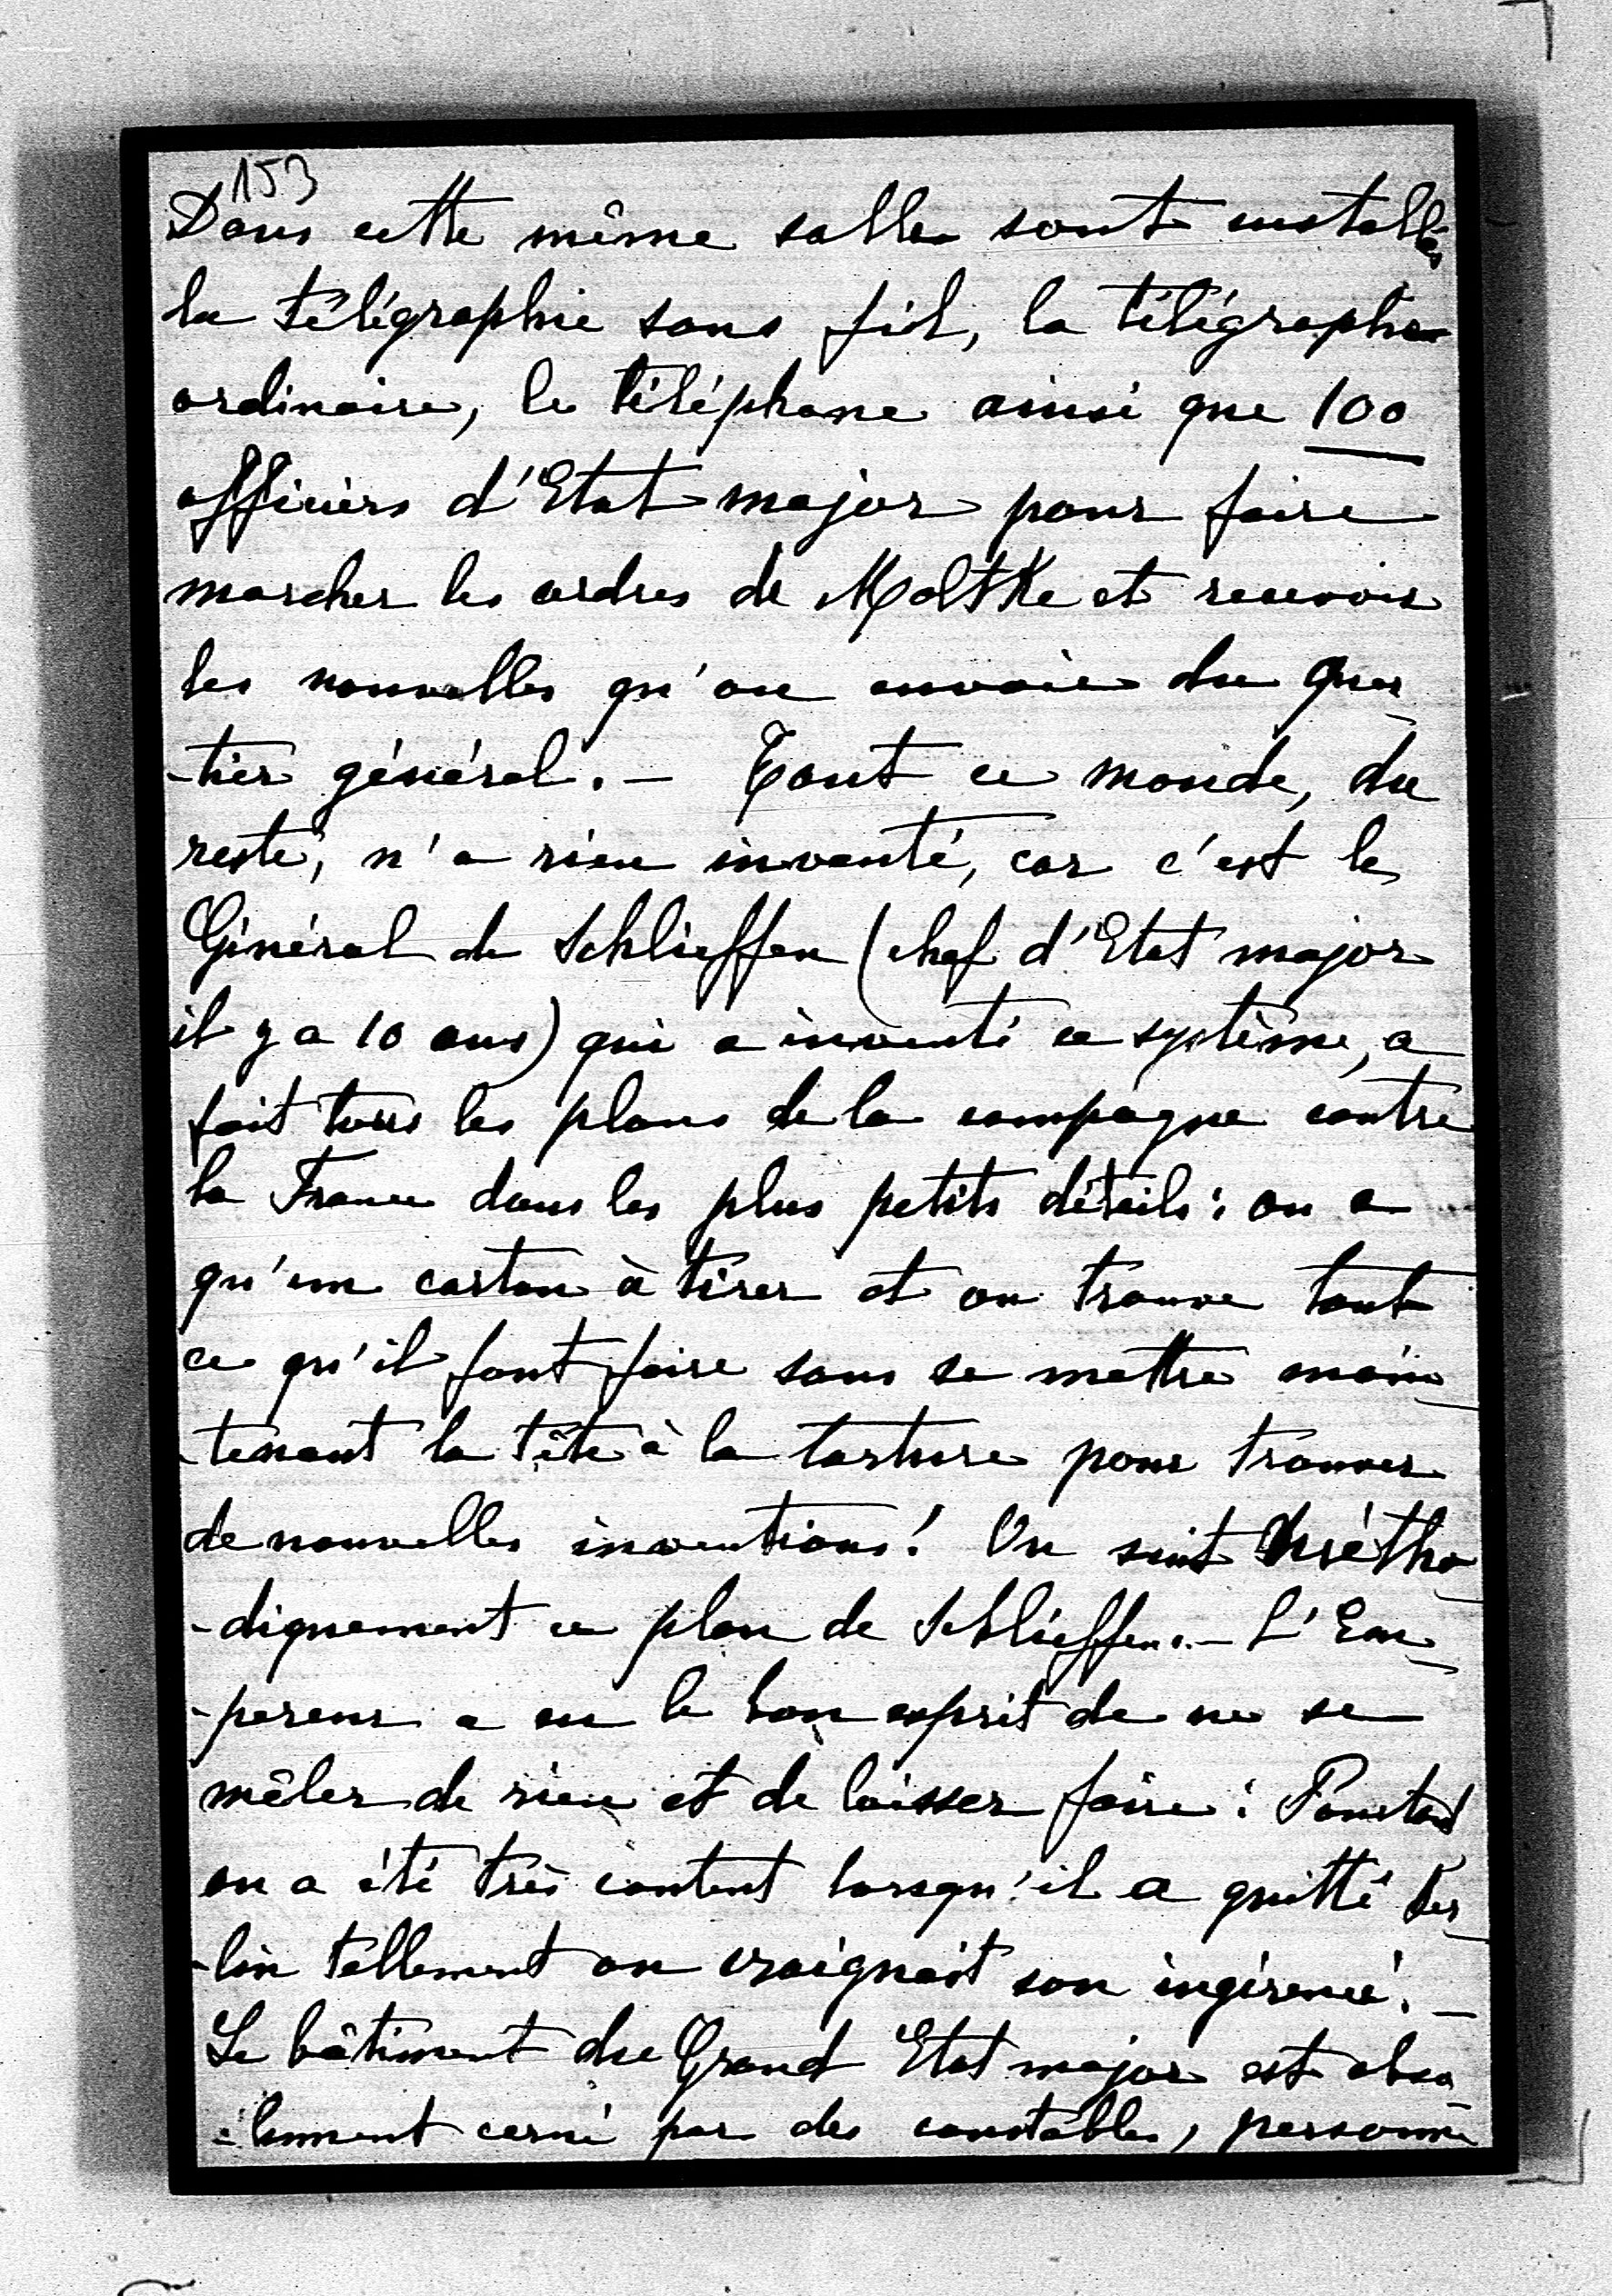 153
Dans cette même salle sont installés
la télégraphie sans fil, la télégraphie
ordinaire, le téléphone ainsi que 100
officiers d'Etat major pour faire
marcher les ordres de Moltke et recevoir
les nouvelles qu'on envoie du quar
-tier général. - Tout ce monde, du
reste, n'a rien inventé, car c'est le
Général de Schlieffen (chef d'Etat major
il y a 10 ans) qui a inventé ce système, a
fait tous les plans de la campagne contre
la France dans les plus petits détails: on a
qu'un carton à tirer et on trouve tout
ce qu'il faut faire sans se mettre main
-tenant la tête à la torture pour trouver
de nouvelles inventions! On suit métho
-diquement ce plan de Schlieffen. - L'Em
-pereur a eu le bon esprit de ne se
mêler de rien et de laisser faire: Pourtant
on a été très content lorsqu'il a quitté Ber
-lin tellement on craignait son ingérence. -
Le bâtiment du Grand Etat major est abso
-lument cerné par des constables, personne